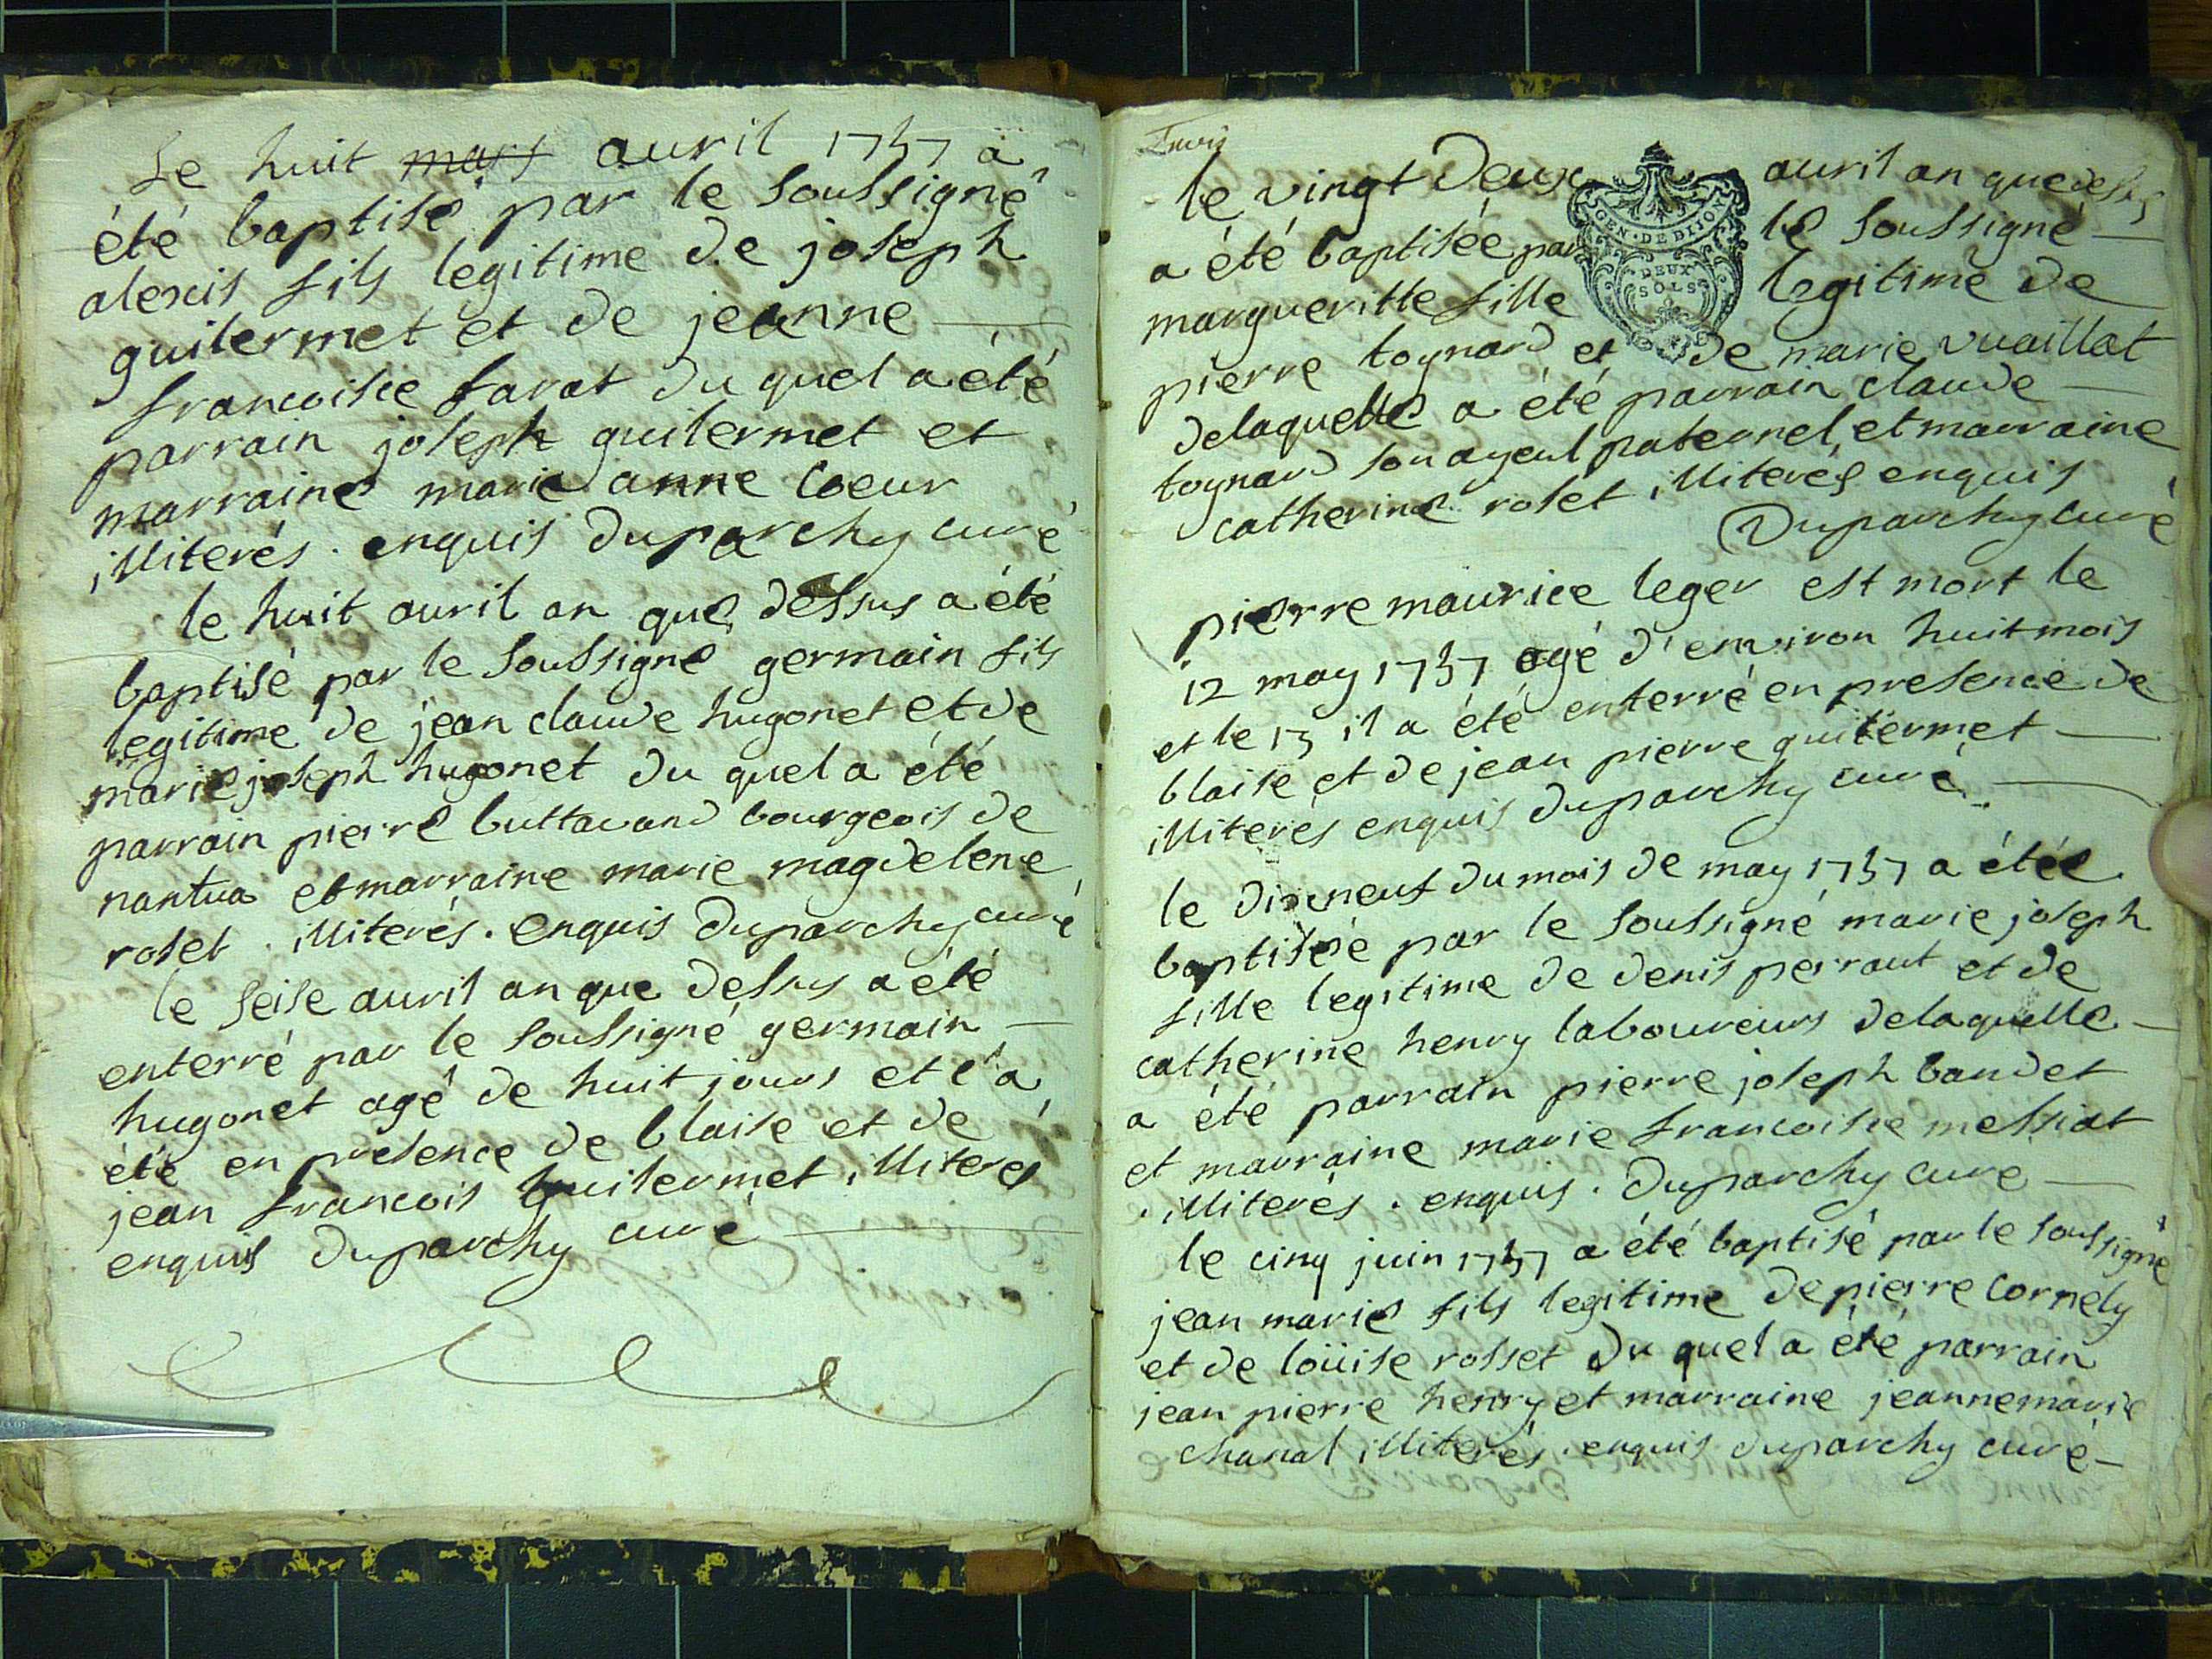 Le huit mars auril 1737 a
été baptisé par le soussigné
alexis fils legitime de joseph
guilermet et de jeanne
francoise favat du quel a été
parrain joseph guilermet et
marraine marie anne Coeur
illiterés. enquis Duparchy curé
le huit auril an que dessus a été
baptisé par le soussigné germain fils
legitime de jean claude hugonet et de
marie joseph hugonet du quel a été
parrain pierre buttavand bourgeois de
nantua et marraine marie magdelene
roset. illiterés. enquis Duparchy curé
le seise auril an que dessus a été
enterré par le soussigné germain
hugonet agé de huit jours et l'a
été en presence de blaise et de
jean francois guilermet illiterés
enquis Duparchy curé
le vingt deux auril an que dessus
a été baptisée par le soussigné
margueritte fille legitime de
GEN. DE DIJON
DEUX
SOLS
pierre toynard et de marie vuaillat
delaquelle a été parrain claude
toynard son ayeul paternel, et marraine
catherine roset illiterés enquis
Duparchy curé
pierre maurice leger est mort le
12 may 1737 agé d'environ huit mois
et le 13 il a été enterré en presence de
blaise et de jean pierre guilermet
illiterés enquis duparchy curé
le dixneuf du mois de may 1737 a étée
baptisée par le soussigné marie joseph
fille legitime de denis perraut et de
catherine henry laboureurs delaquelle
a été parrain pierre joseph baudet
et marraine marie francoise messiat
illiterés. enquis. Duparchy curé
le cinq juin 1737 a été baptisé par le soussigné
jean marie fils legitime de pierre Cornely
et de loüise rosset du quel a été parrain
jean pierre henry et marraine jeanne marie
chanal illiterés. enquis duparchy curé